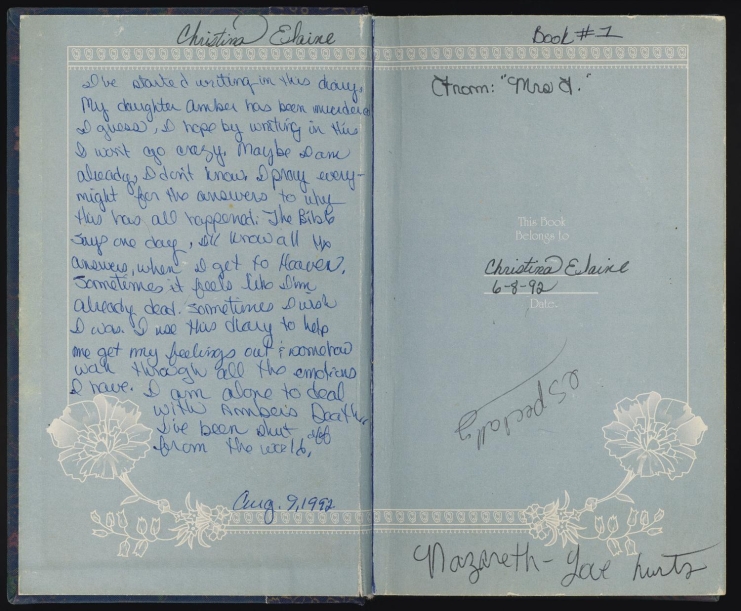 Christina Elaine
I've started writing in this diary.
My daughter Amber has been murdered
I guess, I hope by writing in this
I won't go crazy. Maybe I am
already, I don't know. I pray every-
night for the answers to why
this has all happened. The Bible
says one day, I'll know all the
answers, when I get to Heaven.
Sometimes it feels like I'm
already dead. Sometimes I wish
I was. I use this diary to help
me get my feelings out & somehow
walk through all the emotions
I have. I am alone to deal
with Amber's Death.
I've been shut off
from the world.
Aug. 9, 1992
Book #1
From: "Mrs T."
This Book
Belongs to
Christina Elaine
6-8-92
Date
especially
Nazareth - Love hurts